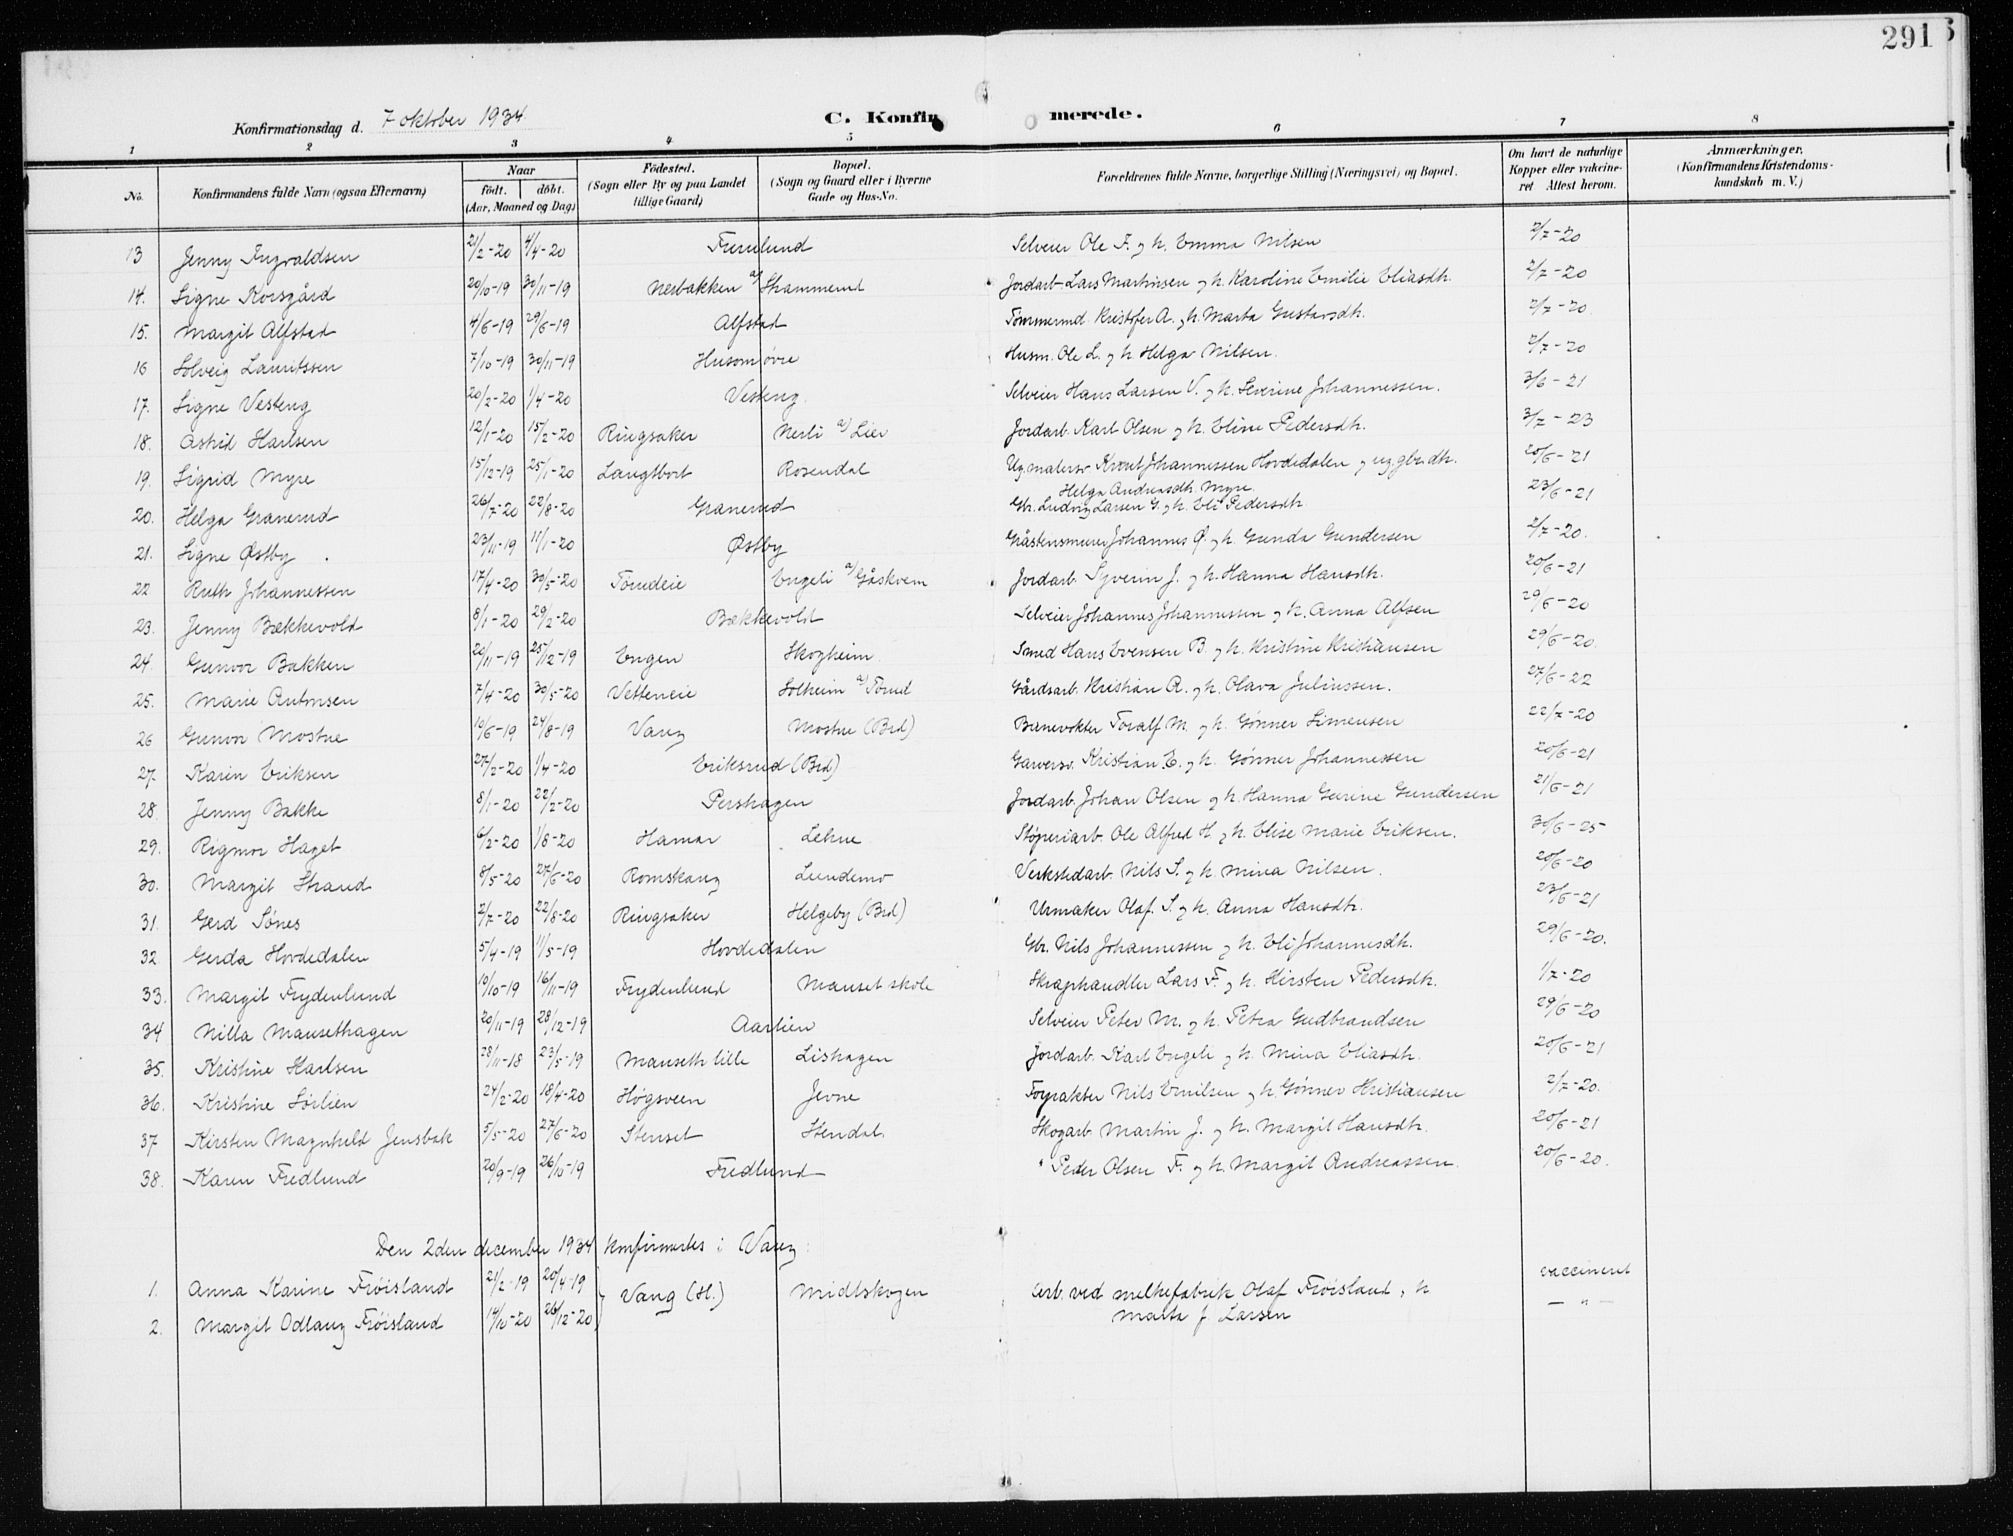 291
Konfirmationsdag d. 7 oktober 1934 C. Konfirmerede.
1 2 3 4 5 6 7 8
No. Konfirmandens fulde Navn (ogsaa Efternavn) Naar födt. döbt. (Aar, Maaned og Dag) Födested. (Sogn eller By og paa Landet tillige Gaard) Bopæl. (Sogn og Gaard eller i Byerne Gade og Hus-No. Forældrenes fulde Navne, borgerlige Stilling (Næringsvei) og Bopæl. Om havt de naturlige Kopper eller vakcineret Attest herom. Anmærkninger. (Konfirmandens Kristendomskundskab m. V.)
13 Jenny Ingvaldsen 21/2-20 4/4-20 Furulund Selveier Ole F. og h. Emma Nilsen 2/7-20
14. Signe Korsgård 20/10-19 30/11-19 Nerbakken a/ Skammerud Jordarb. Lars Martinsen og h. Karoline Emilie Eliasdh. 2/7-20
15. Margit Alfstad 4/6-19 29/6-19 Alfstad Tømmermd. Kristofer A. og h. Marta Gustavsdh. 2/7-20
16 Solveig Lauritssen 7/10-19 30/11-19 Husom øvre Husm. Ole L. og h. Helga Nilsen. 2/7-20
17. Signe Vesteng 20/2-20 1/4-20 Vesteng. Selveier Hans Larsen V. og h. Severine Johannessen. 3/6-21
18. Astrid Karlsen 12/1-20 15/2-20 Ringsaker Nerli a/ Lier Jordarb. Karl Olsen og h. Eline Pedersdh. 3/7-23
19. Sigrid Myre 15/12-19 25/1-20 Langtbort Rosendal Ug. malersv. Knut Johannessen Hovdedalen og ug. gbr.dh. Helga Andreasdh. Myre. 20/6-21
20. Helga Granerud 26/7-20 22/8-20 Granerud Gbr. Ludvig Larsen G. og h. Eli Pedersdh. 23/6-21
21. Signe Østby. 23/11-19 11/1-20 Østby Gråstensmurer Johannes Ø. og h. Gunda Gundersen 2/7-20.
22 Ruth Johannessen 17/4-20 30/5-20 Torudeie Engeli a/ Gåskvern Jordarb. Syverin J. og h. Hanna Hansdh. 20/6-21
23. Jenny Bækkevold 8/1-20 29/2-20 Bækkevold Selveier Johannes Johannessen og h. Anna Alfsen 29/6-20
24. Gunvor Bakken 20/11-19 25/12-19 Engen Skogheim Smed Hans Evensen B. og h. Kristine Kristiansen 29/6-20.
25. Marie Antonsen 7/4-20 30/5-20 Vetteneie Solheim a/ Torud Gårdsarb. Kristian A. og h. Olava Juliussen. 27/6-22
26 Gunvor Mostue 10/6-19 24/8-19 Vang Mostue (Brd) Banevokter Toralf M. og h. Gønner Simensen 22/7-20
27. Karin Eriksen 27/2-20 1/4-20 Eriksrud (Brd) Garversv. Kristian E. og h. Gønner Johannessen 20/6-21
28. Jenny Bakke 8/1-20 22/2-20 Pershagen Jordarb. Johan Olsen og h. Hanna Gurine Gundersen 21/6-21
29. Rigmor Haget 6/2-20 1/8-20 Hamar Lekne Støperiarb. Ole Alfred H. og h. Elise Marie Eriksen. 30/6-25
30. Margit Strand 8/5-20 27/6-20 Romskaug Lundemo Verkstedarb. Nils S. og h. Mina Nilsen. 20/6-20
31. Gerd Sønes 2/7-20 22/8-20 Ringsaker Helgeby (Brd) Urmaker Olaf S. og h. Anna Hansdh. 23/6-21
32 Gerda Hovdedalen 5/4-19 11/5-19 Hovdedalen Gbr. Nils Johannessen og h. Eli Johannesdh. 29/6-20.
33. Margit Frydenlund 10/10-19 16/11-19 Frydenlund Mauset skole Skraphandler Lars F. og h. Kirsten Pedersdh. 1/7-20
34 Nilla Mausethagen 20/11-19 28/12-19 Aarlien Selveier Peter M. og h. Petra Gudbrandsen 29/6-20
35. Kristine Karlsen 28/11-18 23/5-19 Mauseth lille Lishagen Jordarb. Karl Engeli og h. Mina Eliasdh. 20/6-21
36. Kristine Sørlien 24/2-20 18/4-20 Høgsveen Jevne Forpakter Nils Emilsen og h. Gønner Kristiansen 2/7-20.
37 Kirsten Magnhild Jensbak 5/5-20 27/6-20 Stenset Stendal. Skogarb. Martin J. og h. Margit Hansdh. 20/6-21
38. Karen Fredlund 20/9-19 26/10-19 Fredlund " Peder Olsen F. og h. Margit Andreassen. 20/6-20.
Den 2den december 1934 konfirmertes i Vang:
1. Anna Karine Frøisland 21/2-19 20/4-19 } Vang (H.) Midtskogen Arb. ved melkefabrik Olaf Frøisland, h vaccineret
2. Margit Odlaug Frøisland 14/10-20 26/12-20 Marta J Larsen — " —